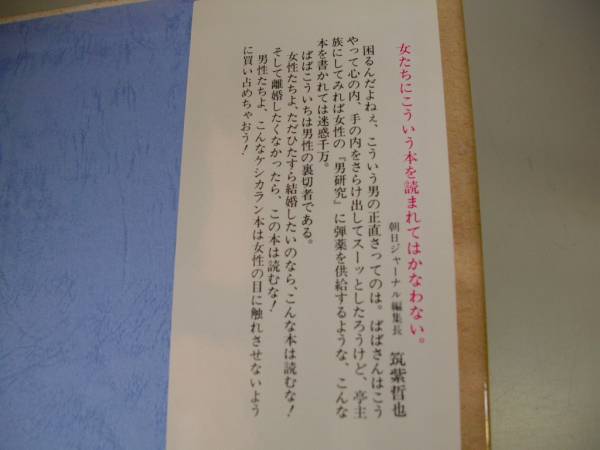 女たちにこういう本を読まれてはかなわない。
朝日ジャーナル編集長 筑紫哲也
困るんだよねぇ、こういう男の正直さってのは。ばばさんはこう
やって心の内、手の内をさらけ出してスーッとしたろうけど、亭主
族にしてみれば女性の『男研究』に弾薬を供給するような、こんな
本を書かれては迷惑千万。
ばばこういちは男性の裏切者である。
女性たちよ、ただひたすら結婚したいのなら、こんな本は読むな!
そして離婚したくなかったら、この本は読むな!
男性たちよ、こんなケシカラン本は女性の目に触れさせないよう
に買い占めちゃおう!